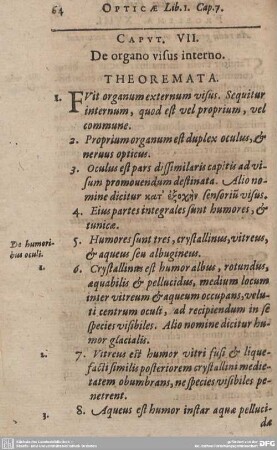 64 OPTICÆ Lib. 1. Cap. 7.
CAPVT. VII.
De organo visus interno.
THEOREMATA.
1. FVit organum externum visus. Sequitur
internum, quod est vel proprium, vel
commune.
2. Proprium organum est duplex oculus, &
neruus opticus.
3. Oculus est pars dissimilaris capitis ad vi-
sum promouendum destinata. Alio no-
mine dicitur κατ' ἐξοχὴν sensoriũ visus.
4. Eius partes integrales sunt humores, &
tunicæ.
De humori-
bus oculi.
5. Humores sunt tres, crystallinus, vitreus,
& aqueus seu albugineus.
1.
6. Crystallinus est humor albus, rotundus,
æquabilis & pellucidus, medium locum
inter vitreum & aqueum occupans, velu-
ti centrum oculi, ad recipiendum in se
species visibiles. Alio nomine dicitur hu-
mor glacialis.
2.
7. Vitreus est humor vitri fusi & lique-
facti similis posteriorem crystallini medie-
tatem obumbrans, ne species visibiles pe-
netrent.
3.
8. Aqueus est humor instar aquæ pelluci-
dæ